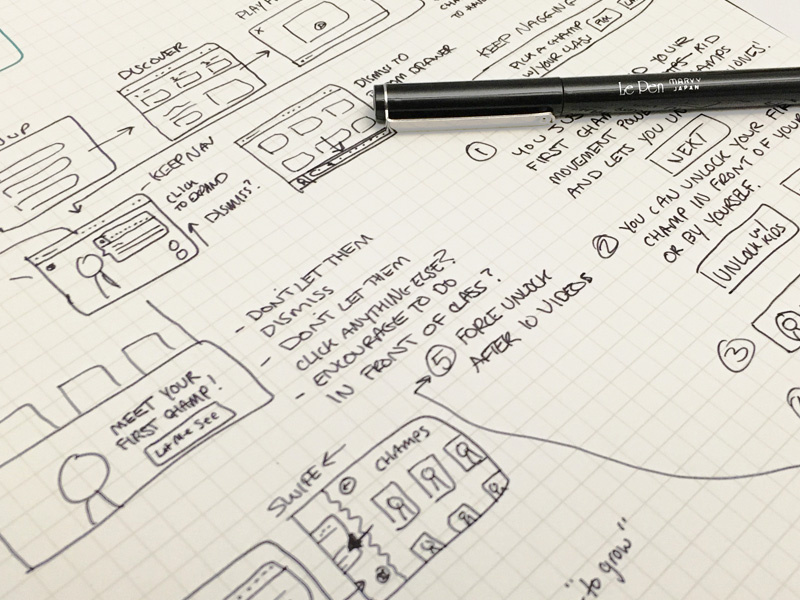 DISCOVER
PLAY
KEEP NAGGING
PICK A CHAMP
W/ YOUR CLASS
DISMISS TO
DRAWER
Le Pen MARVY
JAPAN
- KEEP NAV
CLICK
TO EXPAND
DISMISS?
①
FIRST
MOVEMENT
AND LETS YOU
NEXT
② YOU CAN UNLOCK YOUR
CHAMP IN FRONT OF YOUR
OR BY YOURSELF.
UNLOCK W/
KIDS
③
- DON'T LET THEM
DISMISS
- DON'T LET THEM
CLICK ANYTHING ELSE?
- ENCOURAGE TO DO
IN FRONT OF CLASS?
⑤ FORCE UNLOCK
AFTER 10 VIDEOS
MEET YOUR
FIRST CHAMP!
LET ME SEE
SWIPE
CHAMPS
"to grow"